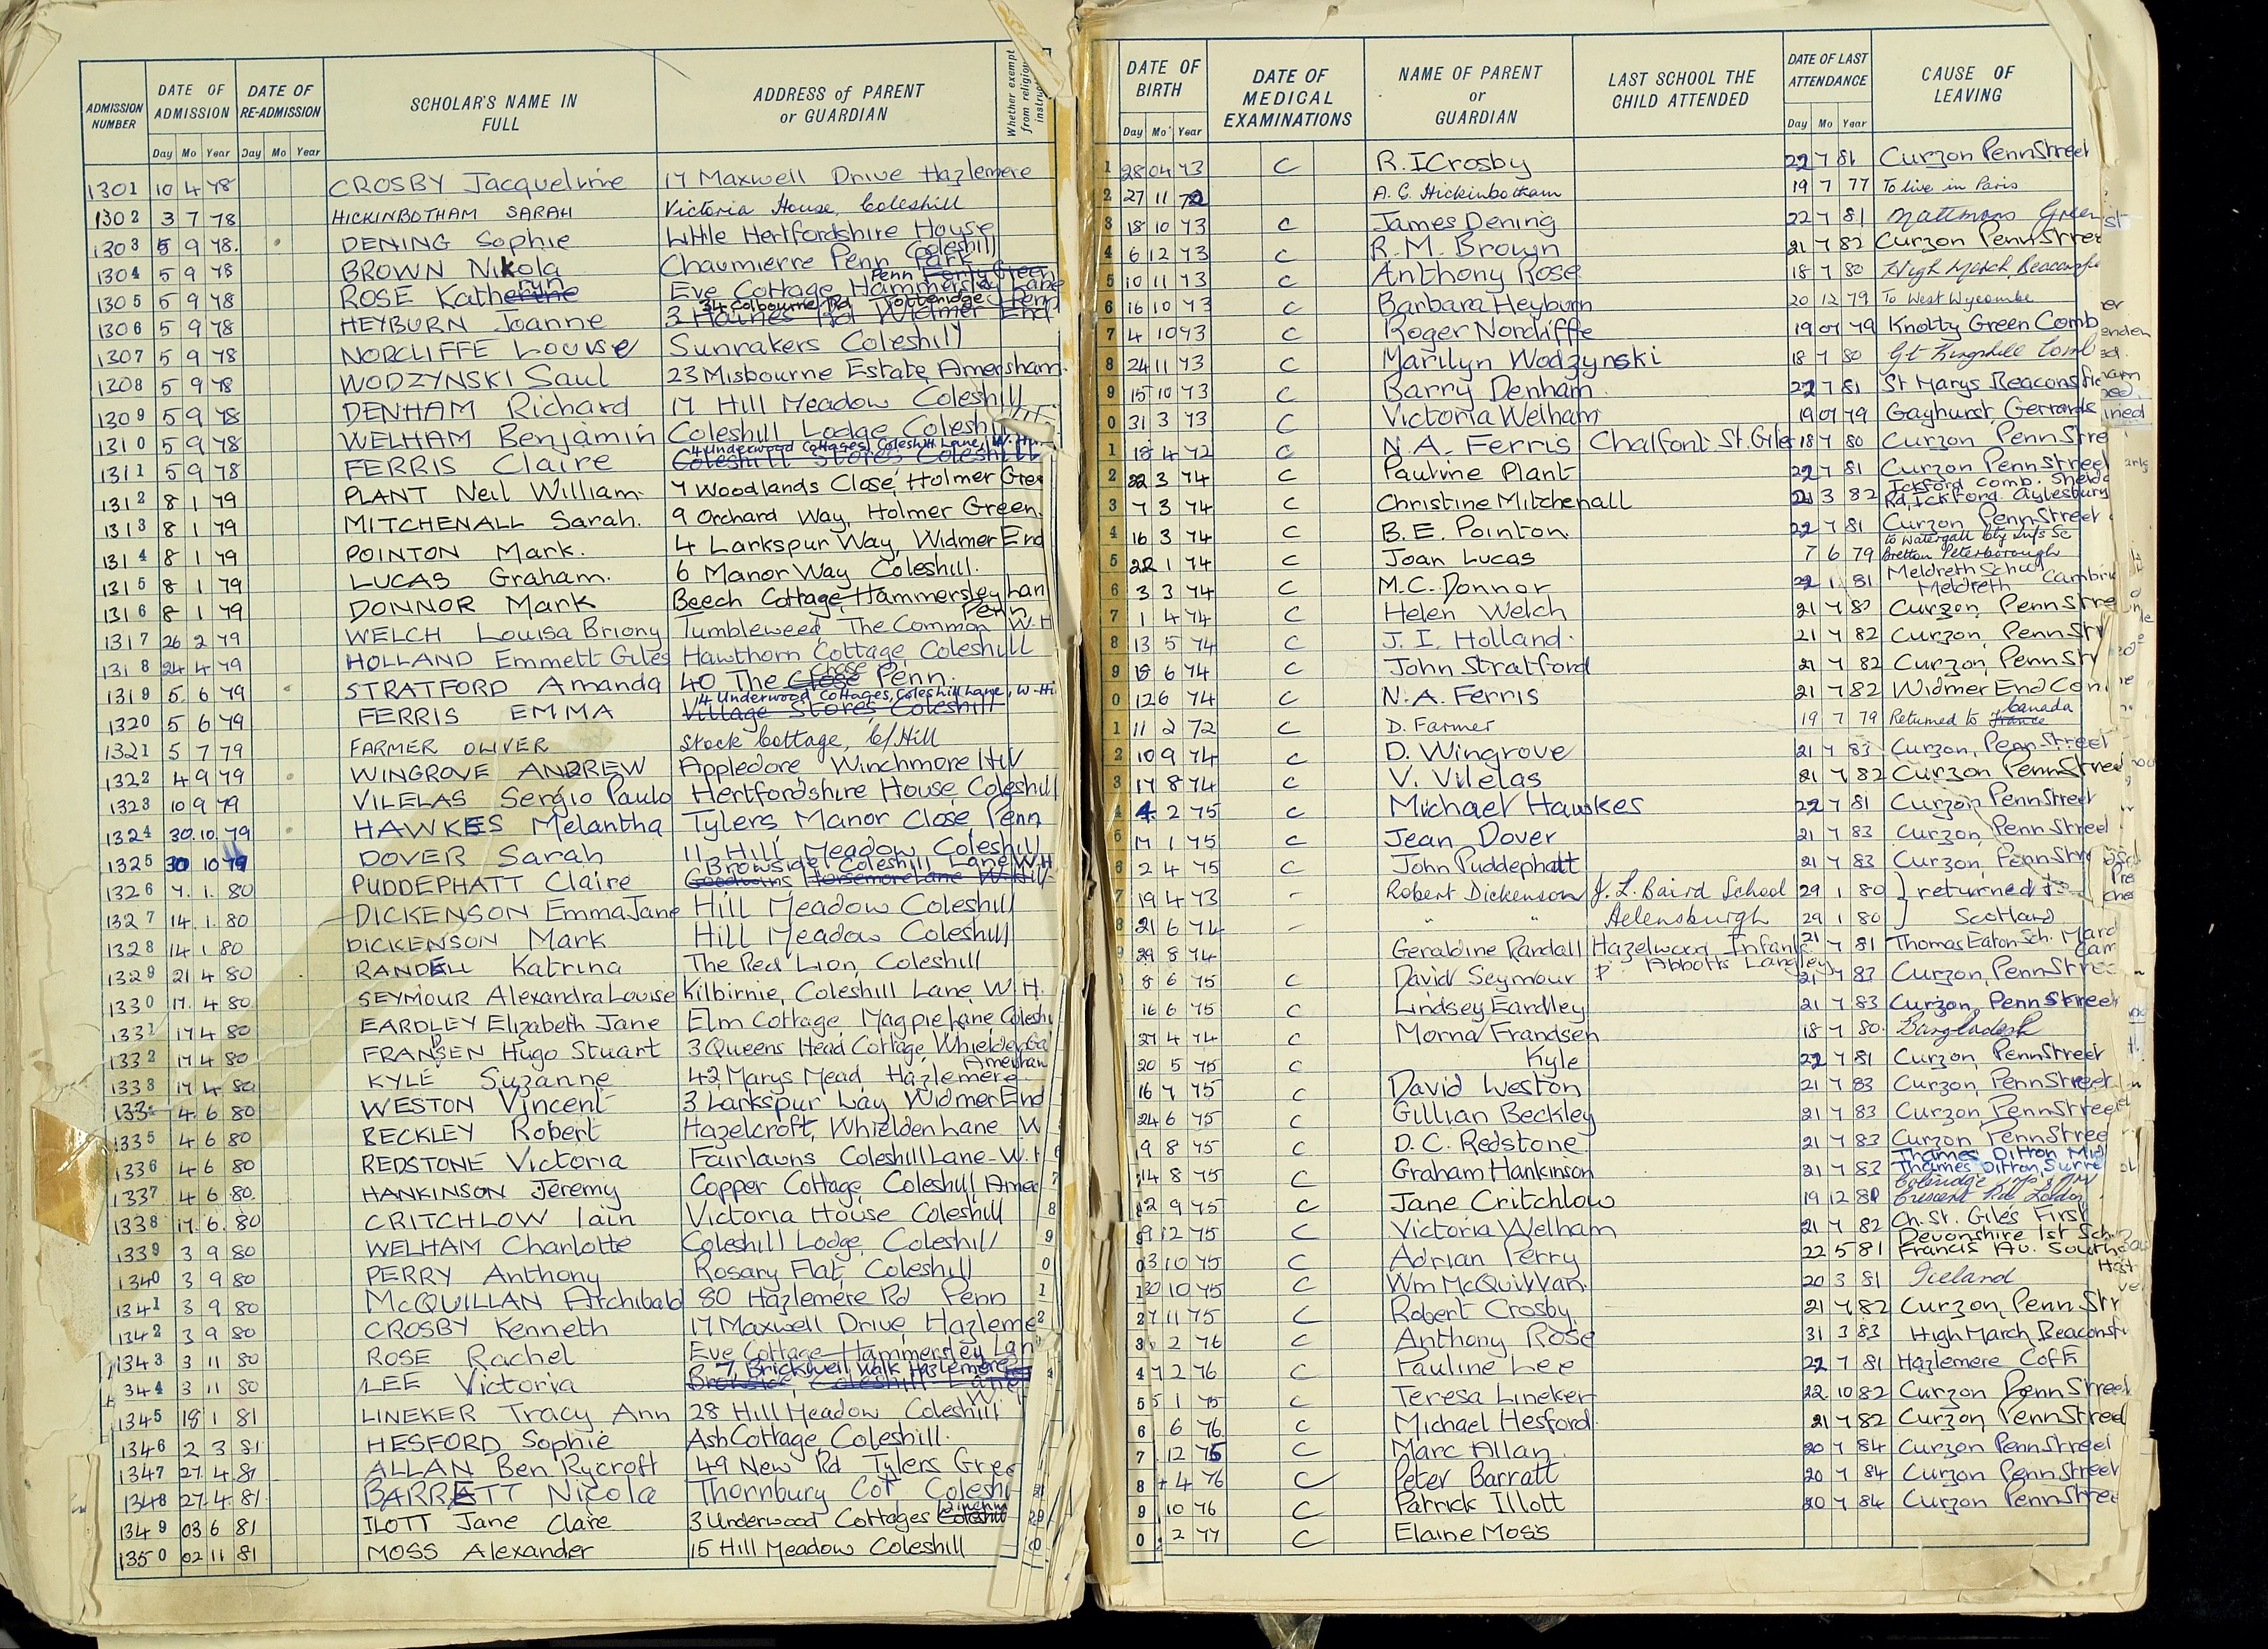 ADMISSION NUMBER DATE OF ADMISSION DATE OF RE-ADMISSION SCHOLAR'S NAME IN FULL ADDRESS of PARENT or GUARDIAN Whether exempt from religious
Day Mo Year Day Mo Year
1301 10 4 78 CROSBY Jacqueline 17 Maxwell Drive Hazlemere
1302 3 7 78 HICKINBOTHAM SARAH Victoria House, Coleshill
1303 5 9 78. DENING Sophie Little Hertfordshire House Coleshill
1304 5 9 78 BROWN Nikola Chaumierre Penn Park
1305 5 9 78 ROSE Katherine ryn Eve Cottage Hammersley Lane Penn
1306 5 9 78 HEYBURN Joanne 34 Colbourne Rd Totteridge 3 Haines Rd Widmer End
1307 5 9 78 NORCLIFFE Louise Sunrakers Coleshill
1308 5 9 78 WODZYNSKI Saul 23 Misbourne Estate Amersham.
1309 5 9 78 DENHAM Richard 17 Hill Meadow Coleshill
1310 5 9 78 WELHAM Benjamin Coleshill Lodge Coleshill
1311 5 9 78 FERRIS Claire 4 Underwood Cottages, Coleshill Lane, Coleshill Stores Coleshill
1312 8 1 79 PLANT Neil William. 7 Woodlands Close, Holmer Gree
1313 8 1 79 MITCHENALL Sarah. 9 Orchard Way, Holmer Green.
1314 8 1 79 POINTON Mark. 4 Larkspur Way, Widmer End
1315 8 1 79 LUCAS Graham. 6 Manor Way Coleshill.
1316 8 1 79 DONNOR Mark Beech Cottage, Hammersley Lan Penn
1317 26 2 79 WELCH Louisa Briony Tumbleweed The Common W.H
1318 24 4 79 HOLLAND Emmett Giles Hawthorn Cottage, Coleshill
1319 5. 6 79 STRATFORD Amanda 40 The Close Chase Penn.
1320 5 6 79 FERRIS EMMA 4 Underwood Cottages, Coleshill Lane, W-Hi Village Stores Coleshill
1321 5 7 79 FARMER OLIVER Stock Cottage, C/Hill
1322 4 9 79 WINGROVE ANDREW Appledore Winchmore Hill
1323 10 9 79 VILELAS Sergio Paulo Hertfordshire House, Coleshill
1324 30. 10. 79 HAWKES Melantha Tylers Manor Close Penn
1325 30 10 79 DOVER Sarah 11 Hill Meadow Coleshill
1326 7. 1. 80 PUDDEPHATT Claire Browside, Coleshill Lane W.H Horsemore Lane
1327 14. 1. 80 DICKENSON Emma Jane Hill Meadow Coleshill
1328 14 1 80 DICKENSON Mark Hill Meadow Coleshill
1329 21 4 80 RANDELL Katrina The Red Lion, Coleshill
1330 17. 4 80. SEYMOUR Alexandra Louise Kilbirnie, Coleshill Lane, W.H.
1331 17 4 80 EARDLEY Elizabeth Jane Elm Cottage, Magpie Lane, Coleshi
1332 17 4 80 FRANSEN Hugo Stuart 3 Queens Head Cottage, Whielden Amersham
1333 17 4 80 KYLE Suzanne 42, Marys Mead, Hazlemere
133 4. 6 80 WESTON Vincent 3 Larkspur Way Widmer End
1335 4 6 80 BECKLEY Robert Hazelcroft, Whielden Lane W
1336 4 6 80 REDSTONE Victoria Fairlawns Coleshill Lane - W.H
1337 4 6 80. HANKINSON Jeremy Copper Cottage, Coleshill, Amer
1338 17. 6. 80 CRITCHLOW Iain Victoria House Coleshill
1339 3 9 80 WELHAM Charlotte Coleshill Lodge, Coleshill
1340 3 9 80 PERRY Anthony Rosary Flat, Coleshill
1341 3 9 80 McQUILLAN Archibald 80 Hazlemere Rd Penn
1342 3 9 80 CROSBY Kenneth 17 Maxwell Drive, Hazleme
1343 3 11 80 ROSE Rachel Eve Cottage Hammersley Lan
344 3 11 80 LEE Victoria 7, Brickwell Walk Hazlemere Coleshill Lane
1345 19 1 81 LINEKER Tracy Ann 28 Hill Meadow Coleshill
1346 2 3 81 HESFORD Sophie Ash Cottage Coleshill.
1347 27. 4 81 ALLAN Ben Rycroft 49 New Rd Tylers Gree
1348 27. 4. 81. BARRETT Nicola Thornbury Cot Coleshi
1349 03 6 81 ILOTT Jane Claire 3 Underwood Cottages Coleshill
1350 02 11 81 MOSS Alexander 15 Hill Meadow Coleshill
DATE OF BIRTH DATE OF MEDICAL EXAMINATIONS NAME OF PARENT or GUARDIAN LAST SCHOOL THE CHILD ATTENDED DATE OF LAST ATTENDANCE CAUSE OF LEAVING
Day Mo Year Day Mo Year
1 28 04 73 C R. I Crosby 22 7 81 Curzon Penn Street
2 27 11 72 A. C. Hickinbotham 19 7 77 To live in Paris
3 18 10 73 C James Dening 22 7 81 Green
4 6 12 73 C R. M. Brown 21 7 82 Curzon Penn Stree
5 10 11 73 C Anthony Rose 18 7 80 High March Beaconsfie
6 16 10 73 C Barbara Heyburn 20 12 79 To West Wycombe
7 4 10 73 C Roger Norcliffe 19 07 79 Knotty Green Comb
8 24 11 73 C Marilyn Wodzynski 18 7 80 Gt Kingshill Comb
9 15 10 73 C Barry Denham. 22 7 81 St Marys Beaconsfie
0 31 3 73 C Victoria Welham 19 07 79 Gayhurst, Gerrards
1 18 4 72 C N. A. Ferris Chalfont St. Giles 18 7 80 Curzon Penn Stre
2 22 3 74 C Pauline Plant 22 7 81 Curzon Penn Street
3 7 3 74 C Christine Mitchenall 21 3 82 Ickford Comb. Sheldo Rd, Ickford. Aylesbury
4 16 3 74 C B. E. Pointon. 22 7 81 Curzon Penn Street
5 22 1 74 C Joan Lucas 7 6 79 to Watergall Cty Infs Sc Bretton Peterborough
6 3 3 74 C M. C. Donnor 22 1 81 Meldreth School Meldreth Cambri
7 1 4 74 C Helen Welch 21 7 82 Curzon, Penn Stre
8 13 5 74 C J. I. Holland. 21 7 82 Curzon, Penn Str
9 18 6 74 C John Stratford 21 7 82 Curzon, Penn St
0 12 6 74 C N. A. Ferris 21 7 82 Widmer End Com
1 11 2 72 C D. Farmer 19 7 79 Returned to France Canada
2 10 9 74 C D. Wingrove 21 7 83 Curzon, Penn Street
3 17 8 74 C V. Vilelas 21 7 82 Curzon Penn Street
4 4. 2 75 C Michael Hawkes 22 7 81 Curzon Penn Street
5 17 1 75 C Jean Dover 21 7 83 Curzon, Penn Street
6 2 4 75 C John Puddephatt 21 7 83 Curzon, Penn Stre
7 19 4 73 - Robert Dickenson J. L. Baird School 29 1 80 } returned to
8 21 6 74 - " " Helensburgh 29 1 80 Scotland
29 8 74 Geraldine Randall Hazelwood Infants 21 7 81 Thomas Eaton Sch.
8 6 75 C David Seymour Abbotts Langley 21 7 83 Curzon, Penn Stree
16 6 75 C Lindsey Eardley 21 7 83 Curzon, Penn Street
27 4 74 C Morna Frandsen 18 7 80. Bangladesh
20 5 75 C Kyle 22 7 81 Curzon, Penn Street
16 7 75 C David Weston 21 7 83 Curzon, Penn Street
24 6 75 C Gillian Beckley 21 7 83 Curzon, Penn Street
9 8 75 C D. C. Redstone 21 7 83 Curzon Penn Stree
14 8 75 C Graham Hankinson 21 7 83 Thames Ditton Thames Ditton, Surre
2 9 75 C Jane Critchlow 19 12 80 Crescent Rd London
9 12 75 C Victoria Welham 21 7 82 Ch. St. Giles First
03 10 75 C Adrian Perry 22 5 81 Devonshire 1st Sch Francis Av. South
30 10 75 C Wm McQuillan. 20 3 81 Iceland
27 11 75 C Robert Crosby. 21 7 82 Curzon, Penn Str
3 2 76 C Anthony Rose 31 3 83 High March Beaconsfi
4 7 2 76 C Pauline Lee 22 7 81 Hazlemere CofE
5 5 1 75 C Teresa Lineker 22 10 82 Curzon Penn Street
6 6 76 C Michael Hesford. 21 7 82 Curzon, Penn Street
7 12 75 C Marc Allan. 20 7 84 Curzon Penn Street
8 4 76 C Peter Barratt 20 7 84 Curzon Penn Street
9 10 76 C Patrick Illott 20 7 84 Curzon Penn Stree
0 2 77 C Elaine Moss